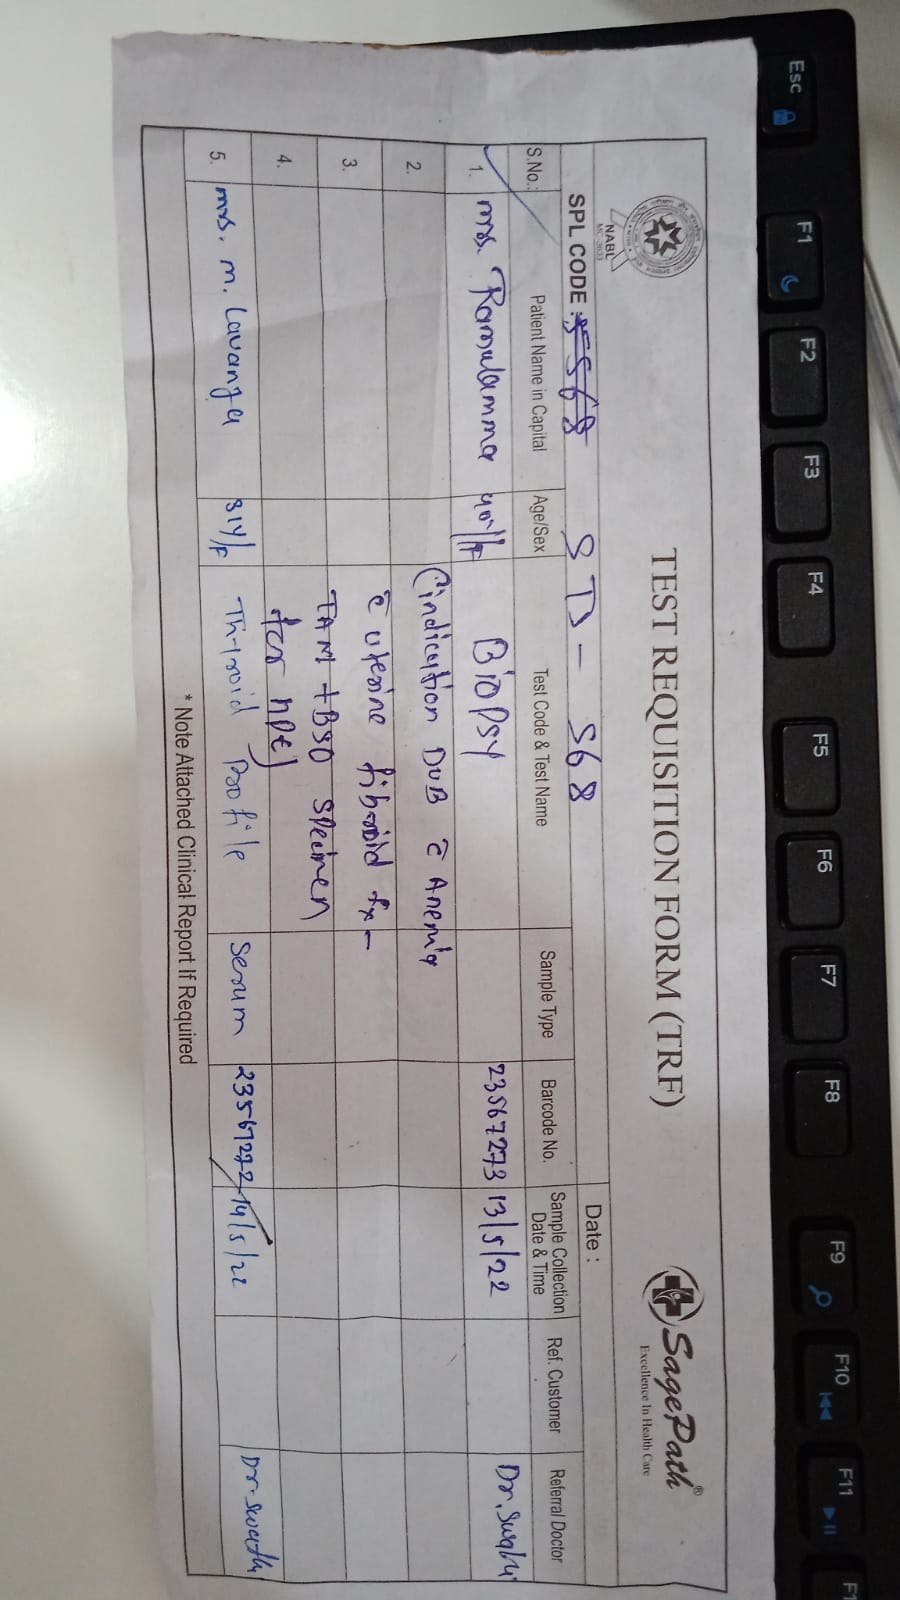 TEST REQUISITION FORM (TRF)
SagePath®
Excellence In Health Care
NABL
SPL CODE : STD - 568
Date :
S.No.: Patient Name in Capital Age/Sex Test Code & Test Name Sample Type Barcode No. Sample Collection Date & Time Ref. Customer Referral Doctor
1. Mrs. Ramulamma 40Y/F Biopsy 23567273 13/5/22 Dr. Swathi
2. (indication DUB c̄ Anemia
3. c̄ uterine fibroid
4. TAH + BSO specimen
for HPE)
5. Mrs. M. Lavanya 31Y/F Thyroid Profile Serum 23567272 14/5/22 Dr. Swathi
* Note Attached Clinical Report If Required
Esc F1 F2 F3 F4 F5 F6 F7 F8 F9 F10 F11